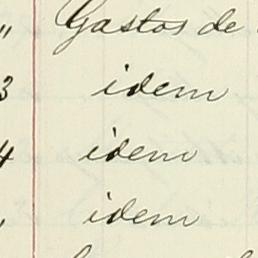 " Gastos de
3 idem
4 idem
idem